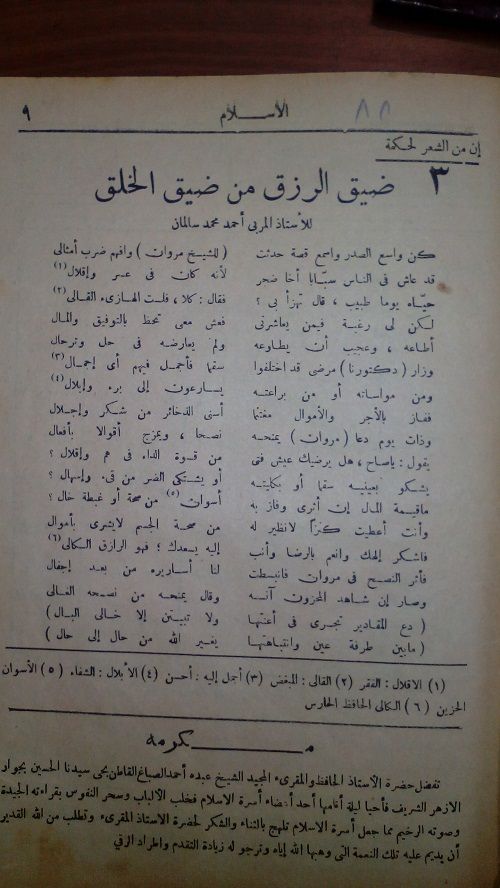 الاسلام ٨٨ ٩
إن من الشعر لحكمة
٣ ضيق الرزق من ضيق الخلق
للأستاذ المربى أحمد محمد سالمان
كن واسع الصدر واسمع قصة حدثت ( للشيخ مروان ) وافهم ضرب أمثالى
قد عاش فى الناس سبّابا أخا ضجر لأنه كان فى عسر وإقلال (١)
حيّاه يوما طبيب ، قال تهزأ بى ؟ فقال : كلا ، فلست الهازىء القالى (٢)
لكن لى رغبة فيمن يعاشرنى فعش معى تحظ بالتوفيق والمال
أطاعه ، وعجيب أن يطاوعه ولم يعارضه فى حل وترحال
وزار ( دكتورنا ) مرضى قد اختلفوا سقما فأجمل فيهم أى إجمال (٣)
ومن مواساته أو من براعته يسارعون إلى برء وإبلال (٤)
ففاز بالأجر والأموال مغتنما أسنى الذخائر من شكر وإجلال
وذات يوم دعا ( مروان ) يمنحه نصحا ، ويمزج أقوالا بأفعال
يقول : ياصاح ، هل يرضيك عيش فتى من قسوة الداء فى هم وإقلال ؟
يشكو بعينيه سقما أو بكليته أو يشتكى الضر من قىء وإسهال ؟
ماقيمة المال إن أثرى وفاز به أسوان (٥) من صحة أو غبطة خال ؟
وأنت أعطيت كنزاً لانظير له من صحة الجسم لايشرى بأموال
فاشكر إلهك وانعم بالرضا وأنب إليه يسعدك ؛ فهو الرازق الكالى (٦)
فأثر النصح فى مروان فانبسطت لنا أساريره من بعد إجفال
وصار إن شاهد المحزون آنسه وقال يمنحه من نصحه الغالى
( دع المقادير تجرى فى أعنتها ولا تبيتن إلا خالى البال )
( مابين طرفة عين وانتباهتها يغير الله من حال إلى حال )
(١) الاقلال : الفقر (٢) القالى : المبغض (٣) أجمل إليه : أحسن (٤) الأبلال : الشفاء (٥) الأسوان
الحزين (٦) الكالى الحافظ الحارس
مكرمة
تفضل حضرة الأستاذ الحافظ والمقرىء المجيد الشيخ عبده أحمد الصباغ القاطن بحى سيدنا الحسين بجوار
الازهر الشريف فأحيا ليلة أقامها أحد أعضاء أسرة الاسلام فخلب الألباب وسحر النفوس بقراءته الجيدة
وصوته الرخيم مما جعل أسرة الاسلام تلهج بالثناء والشكر لحضرة الاستاذ المقرىء وتطلب من الله القدير
أن يديم عليه تلك النعمة التى وهبها الله إياه ونرجو له زيادة التقدم واطراد الرقي